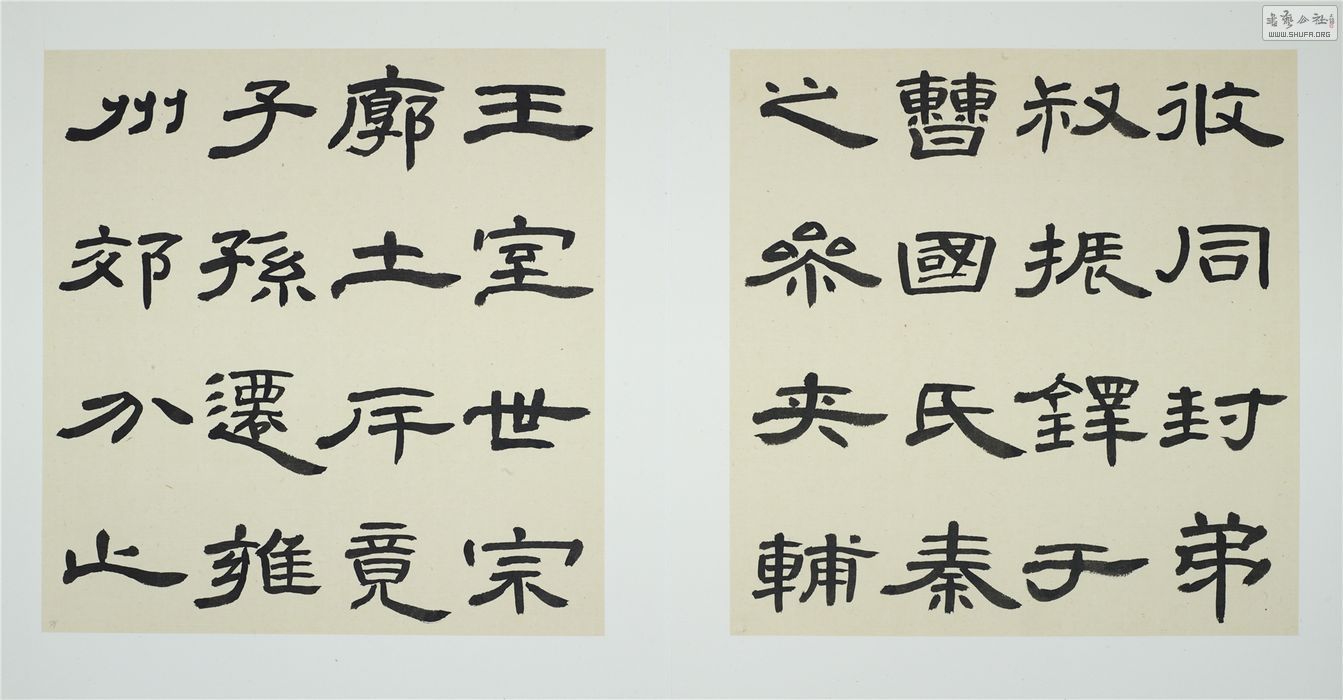 攸同封弟
叔振鐸于
曹國氏秦
之參夾輔
王室世宗
廓土斥竟
子孫遷雍
州郊分止
書藝公社
WWW.SHUFA.ORG